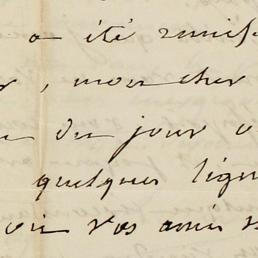 a été remis
, mon cher
du jour
quelques lign
oir vos amis